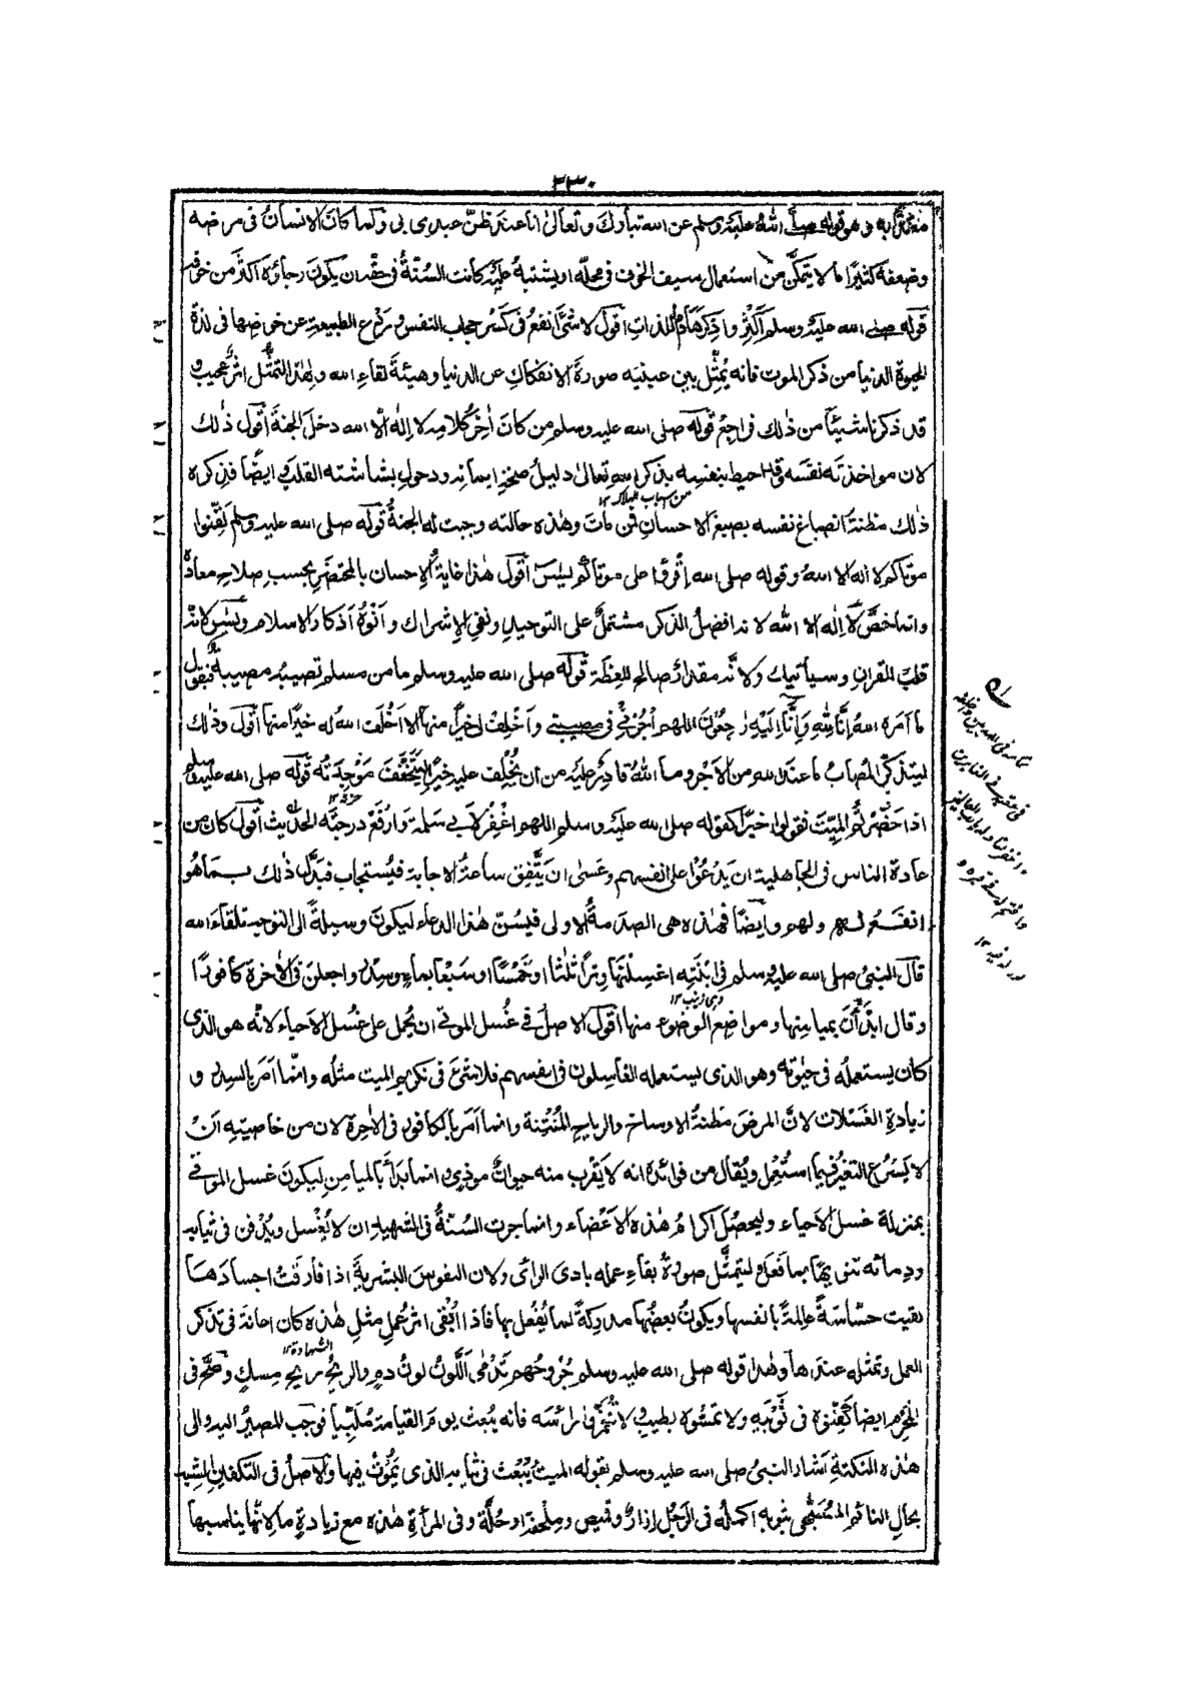 ٢٣٠
معتمدًا به وهو قوله صلى الله عليه وسلم عن الله تبارك وتعالى انا عند ظن عبدى بى وكما كان الانسان فى مرضه
وضعفه كثيرًا ما لا يتمكن من استعمال سيف الخوف فى محله او يشتبه عليه كانت السُنّة فى حقه ان يكون رجاؤه اكثر من خوفه
قوله صلى الله عليه وسلم اكثروا ذكر هاذم اللذات اقول لا شئ انفع فى كسر حجاب النفس وردع الطبيعة عن خوضها فى لذة
الحيوة الدنيا من ذكر الموت فانه يُمثّل بين عينيه صورة الانفكاك عن الدنيا وهيئة لقاء الله ولهذا التمثل اثر عجيب و
قد ذكرنا شيئًا من ذلك فراجع قوله صلى الله عليه وسلم من كان اٰخر كلامه لا اله الا الله دخل الجنة اقول ذلك
لان مواخذته نفسه وقد احيط بنفسه بذكر الله تعالى دليل صحة ايمانه ودخول بشاشته القلب وايضًا فذكره
من اسباب الهلاك ١٢
ذلك مظنة انصباغ نفسه بصبغ الاحسان فمن مات وهذه حالته وجبت له الجنة قوله صلى الله عليه وسلم لقنوا
موتاكم لا اله الا الله وقوله صلى الله اقرؤا على موتاكم يٰسٓ اقول هذا غاية الاحسان بالمحتضر بحسب صلاح معاده
وانما خص لا اله الا الله لانه افضل الذكر مشتمل على التوحيد ونفى الاشراك وانوه اذكار الاسلام ويٰسٓ لانه
قلب القرآن وسيأتيك ولانه مقدار صالح للعظة قوله صلى الله عليه وسلم ما من مسلم تصيبه مصيبة فيقول
ما امره الله انا لله وانا اليه راجعون اللهم اجرنى فى مصيبتى واخلف لى خيرًا منها الا اخلف الله له خيرًا منها اقول وذلك
ليتذكر المصاب ما عند الله من الاجر وما الله قادر عليه من ان يخلف عليه خيرًا ليتخفف موجدته قوله صلى الله عليه وسلم
حزنه ١٢
اذا حضرتم الميت فقولوا خيرًا كقوله صلى الله عليه وسلم اللهم اغفر لابى سلمة وارفع درجته الحديث اقول كان من
عادة الناس فى الجاهلية ان يدعوا على انفسهم وعسى ان يتفق ساعة الاجابة فيستجاب فبدل ذلك بما هو
انفع لهم ولهم وايضًا فهذه هى الصدمة الاولى فيسن هذا الدعاء ليكون وسيلة الى التوجه تلقاء الله
قال النبى صلى الله عليه وسلم فى ابنته اغسلنها وترًا ثلثًا او خمسًا او سبعًا بماء وسدر واجعلن فى الاٰخرة كافورًا
وهى زينب ١٢
وقال ابدأن بميامنها ومواضع الوضوء منها اقول الاصل فى غسل الموتى ان يحمل على غسل الاحياء لانه هو الذى
كان يستعمله فى حيوته وهو الذى يستعمله الغاسلون فى انفسهم فلا شئ فى تكريم الميت مثله وانما امر بالسدر و
زيادة الغسلات لان المرض مظنة الاوساخ والرياح المنتنة وانما امر بالكافور فى الاٰخرة لان من خاصيته ان
لا يسرع التغير فيما استعمل ويقال من فوائده انه لا يقرب منه حيوان موذى وانما بدأ بالميامن ليكون غسل الموتى
بمنزلة غسل الاحياء وليحصل اكرام هذه الاعضاء وانما جرت السُنّة فى الشهيد ان لا يغسل ويدفن فى ثيابه
ودمائه تنويهًا بما فعل وليتمثل صورة بقاء عمله بادى الراى ولان النفوس البشرية اذا فارقت اجسادها
بقيت حساسة عالمة بانفسها ويكون بعضها مدركة لما يفعل بها فاذا ابقى اثر عمل مثل هذه كان اعانة فى تذكر
الشهادة ١٢
العمل وتمثله عندها وهذا قوله صلى الله عليه وسلم جروحهم تدمى اللون لون دم والريح ريح مسك وصح فى
المحرم ايضًا كفنوه فى ثوبيه ولا تمسوه بطيب ولا تخمروا رأسه فانه يبعث يوم القيامة ملبيًا فوجب المصير اليه والى
هذه النكتة اشار النبى صلى الله عليه وسلم بقوله الميت يُبعث فى ثيابه الذى يموت فيها والاصل فى التكفين الشبه
بحال النائم المسجى بثوبه اكمله فى الرجل ازار وقميص وملحفة او حلة وفى المرأة هذه مع زيادة ما لانها يناسبها